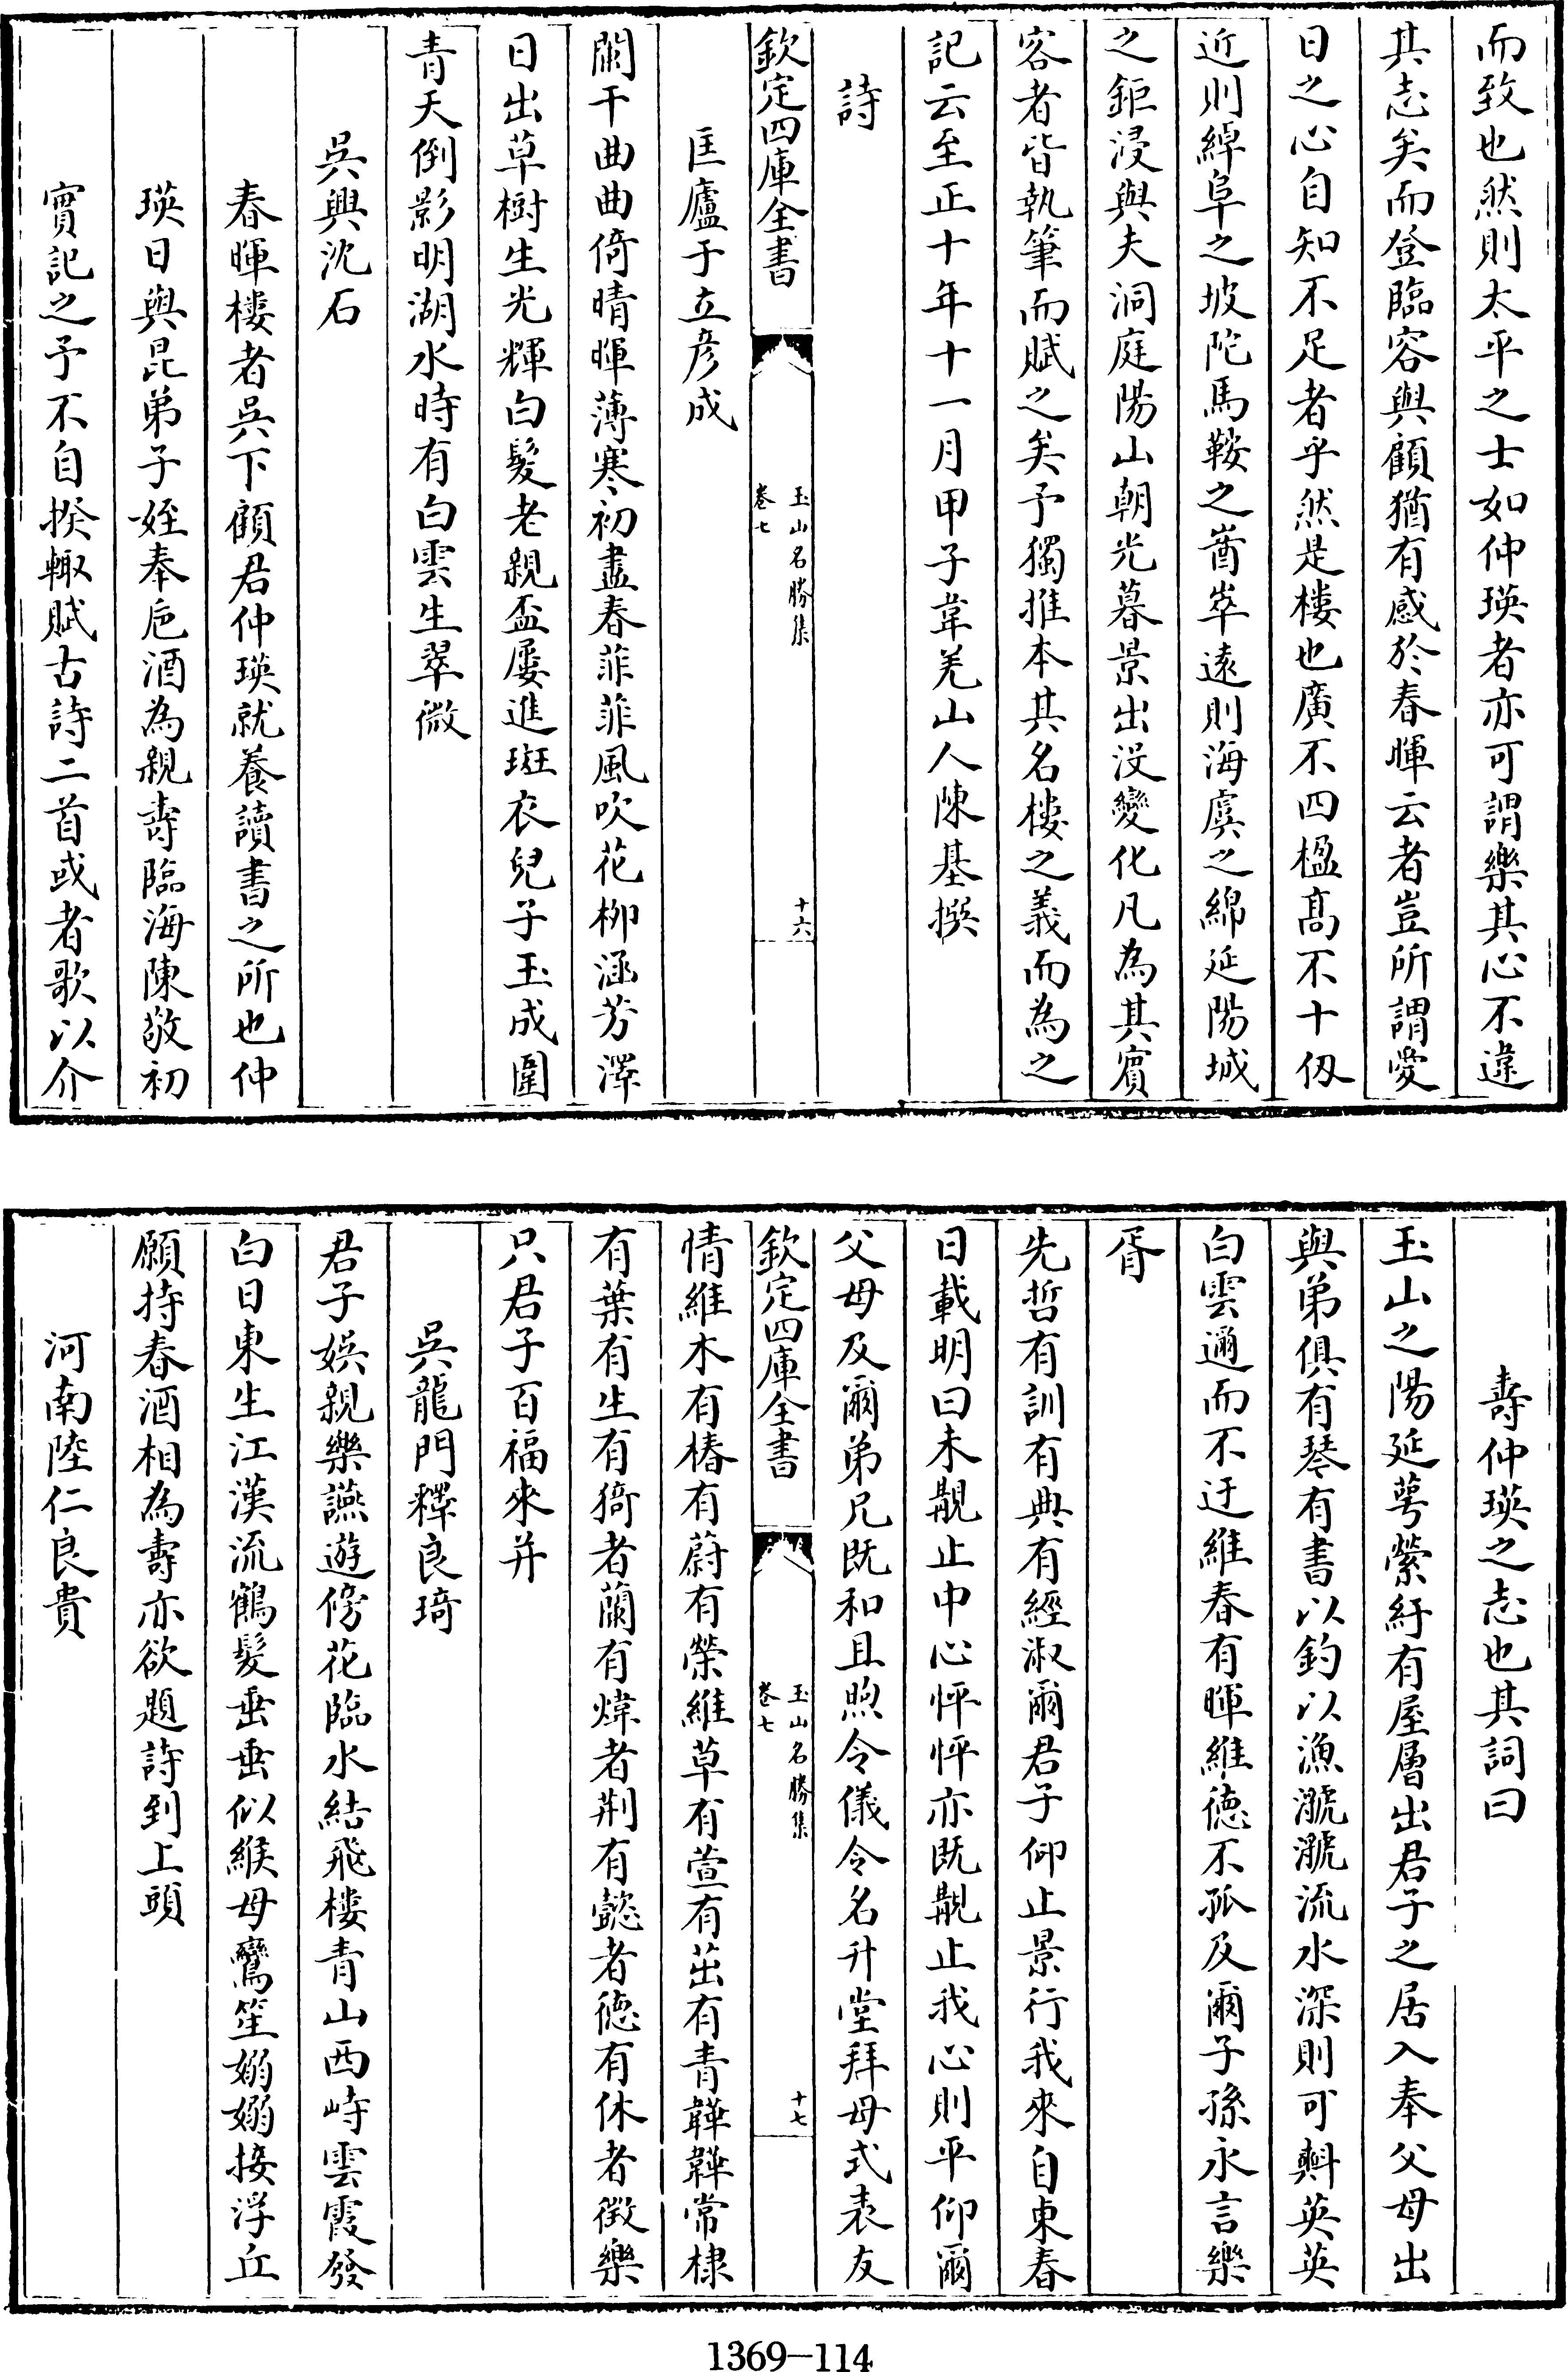 而致也然則太平之士如仲瑛者亦可謂樂其心不違
其志矣而登臨容與顧猶有感於春暉云者豈所謂愛
日之心自知不足者乎然是樓也廣不四楹髙不十仭
近則綽阜之坡陀馬鞍之崷崒遠則海虞之綿延陽城
之鉅浸與夫洞庭陽山朝光暮景出没變化凡為其賓
客者皆執筆而賦之矣予獨推本其名樓之義而為之
記云至正十年十一月甲子韋羌山人陳基撰
詩
欽定四庫全書
玉山名勝集
卷七
十六
匡廬于立彦成
闌干曲曲倚晴暉薄寒初盡春菲菲風吹花栁涵芳澤
日出草樹生光輝白髪老親盃屢進斑衣兒子玉成圍
青天倒影明湖水時有白雲生翠微
吳興沈石
春暉樓者吳下顧君仲瑛就養讀書之所也仲
瑛日與昆弟子姪奉巵酒為親壽臨海陳敬初
實記之予不自揆輙賦古詩二首或者歌以介
壽仲瑛之志也其詞曰
玉山之陽延萼縈紆有屋層出君子之居入奉父母出
與弟俱有琴有書以釣以漁㶁㶁流水深則可㪺英英
白雲邇而不迂維春有暉維徳不孤及爾子孫永言樂
胥
先哲有訓有典有經淑爾君子仰止景行我來自東春
日載明曰未覯止中心怦怦亦既覯止我心則平仰爾
父母及爾弟兄既和且煦令儀令名升堂拜母式表友
欽定四庫全書
玉山名勝集
卷七
十七
情維木有椿有蔚有榮維草有萱有茁有青韡韡常棣
有葉有生有猗者蘭有煒者荆有懿者徳有休者徴樂
只君子百福來并
吳龍門釋良琦
君子娛親樂讌遊傍花臨水結飛樓青山西峙雲霞發
白日東生江漢流鶴髪垂垂似緱母鸞笙嫋嫋接浮丘
願持春酒相為壽亦欲題詩到上頭
河南陸仁良貴
1369-114